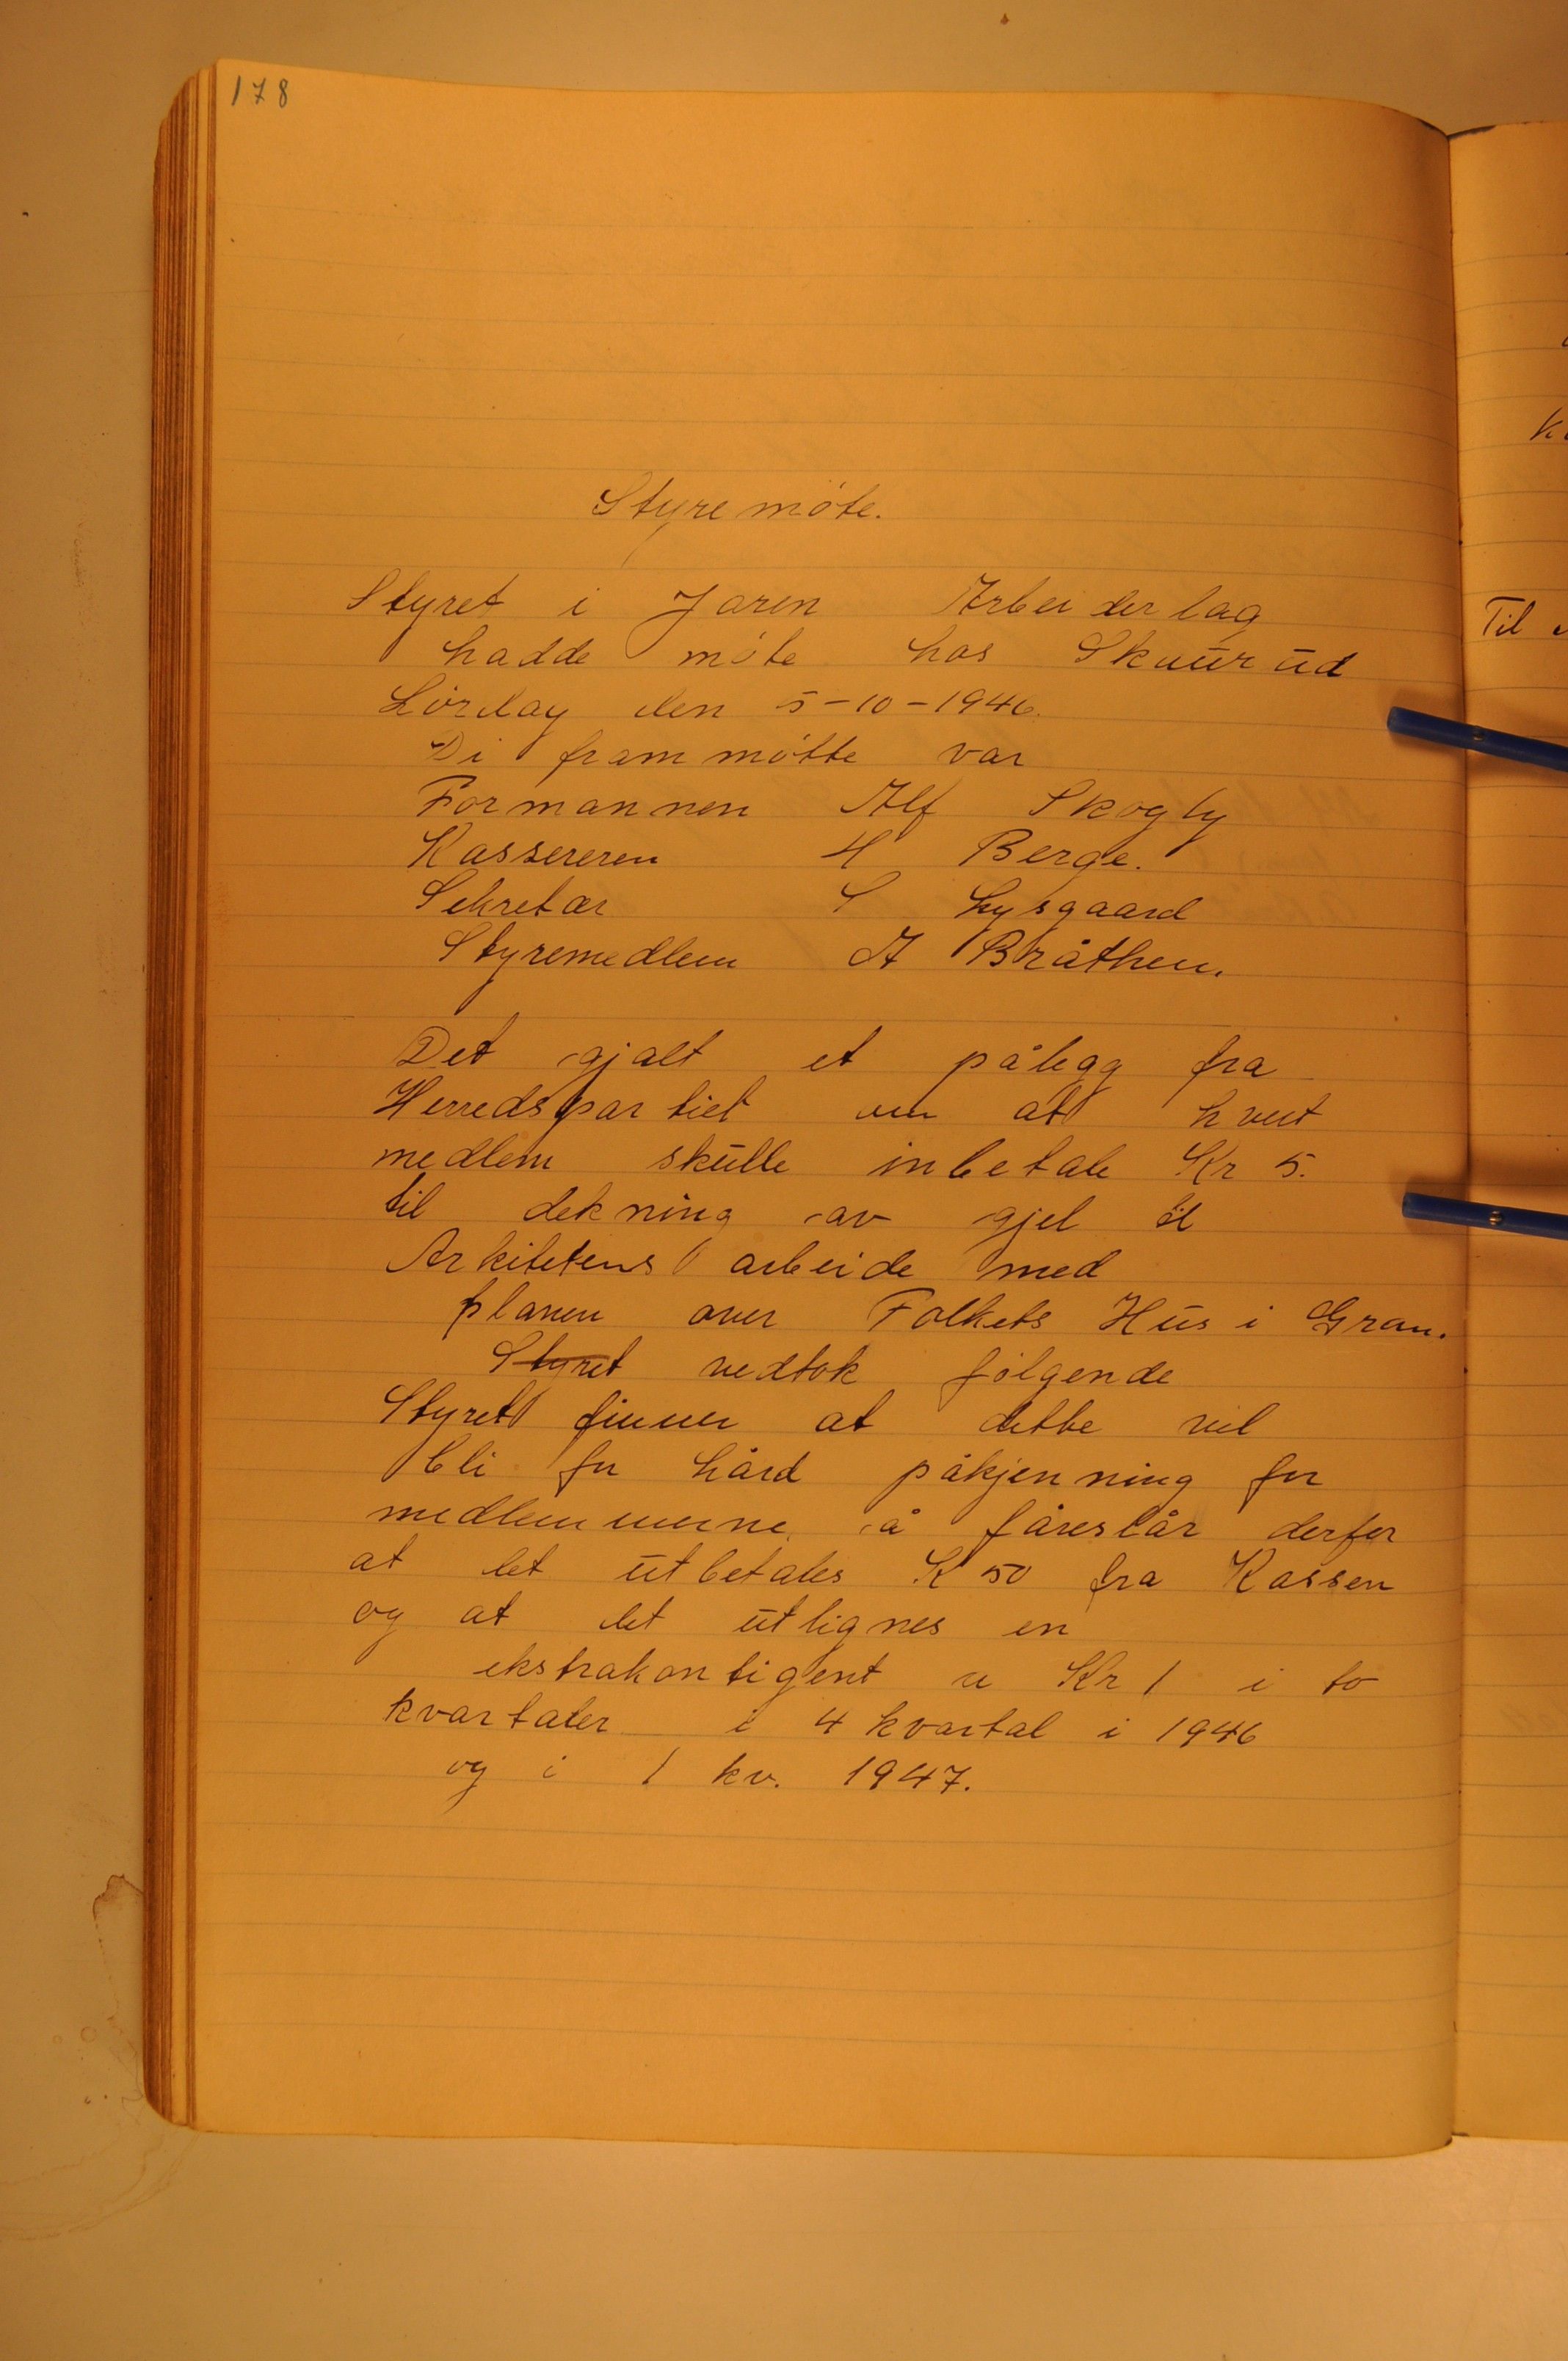 178
Styremöte.
Styret i Jaren Arbeiderlag
hadde möte hos Skuurud
Lördag den 5-10-1946.
Di frammötte var
Formannen Alf Skogly
Kassereren H Berge.
Sekretær S Lysgaard
Styremedlem A Bråthen.
Det gjalt et pålegg fra
Herredspartiet om at hvert
medlem skulle inbetale Kr 5.
til dekning av gjel til
Arkitetens arbeide med
planen over Folkets Hus i Gran.
Styret vedtok fölgende
Styret finner at dette vil
bli for hård påkjenning for
medlemmerne å fåreslår derfor
at det utbetales K 50 fra Kassen
og at det utlignes en
ekstrakontigent a Kr 1 i to
kvartaler i 4 kvartal i 1946
og i 1 kv. 1947.
Til